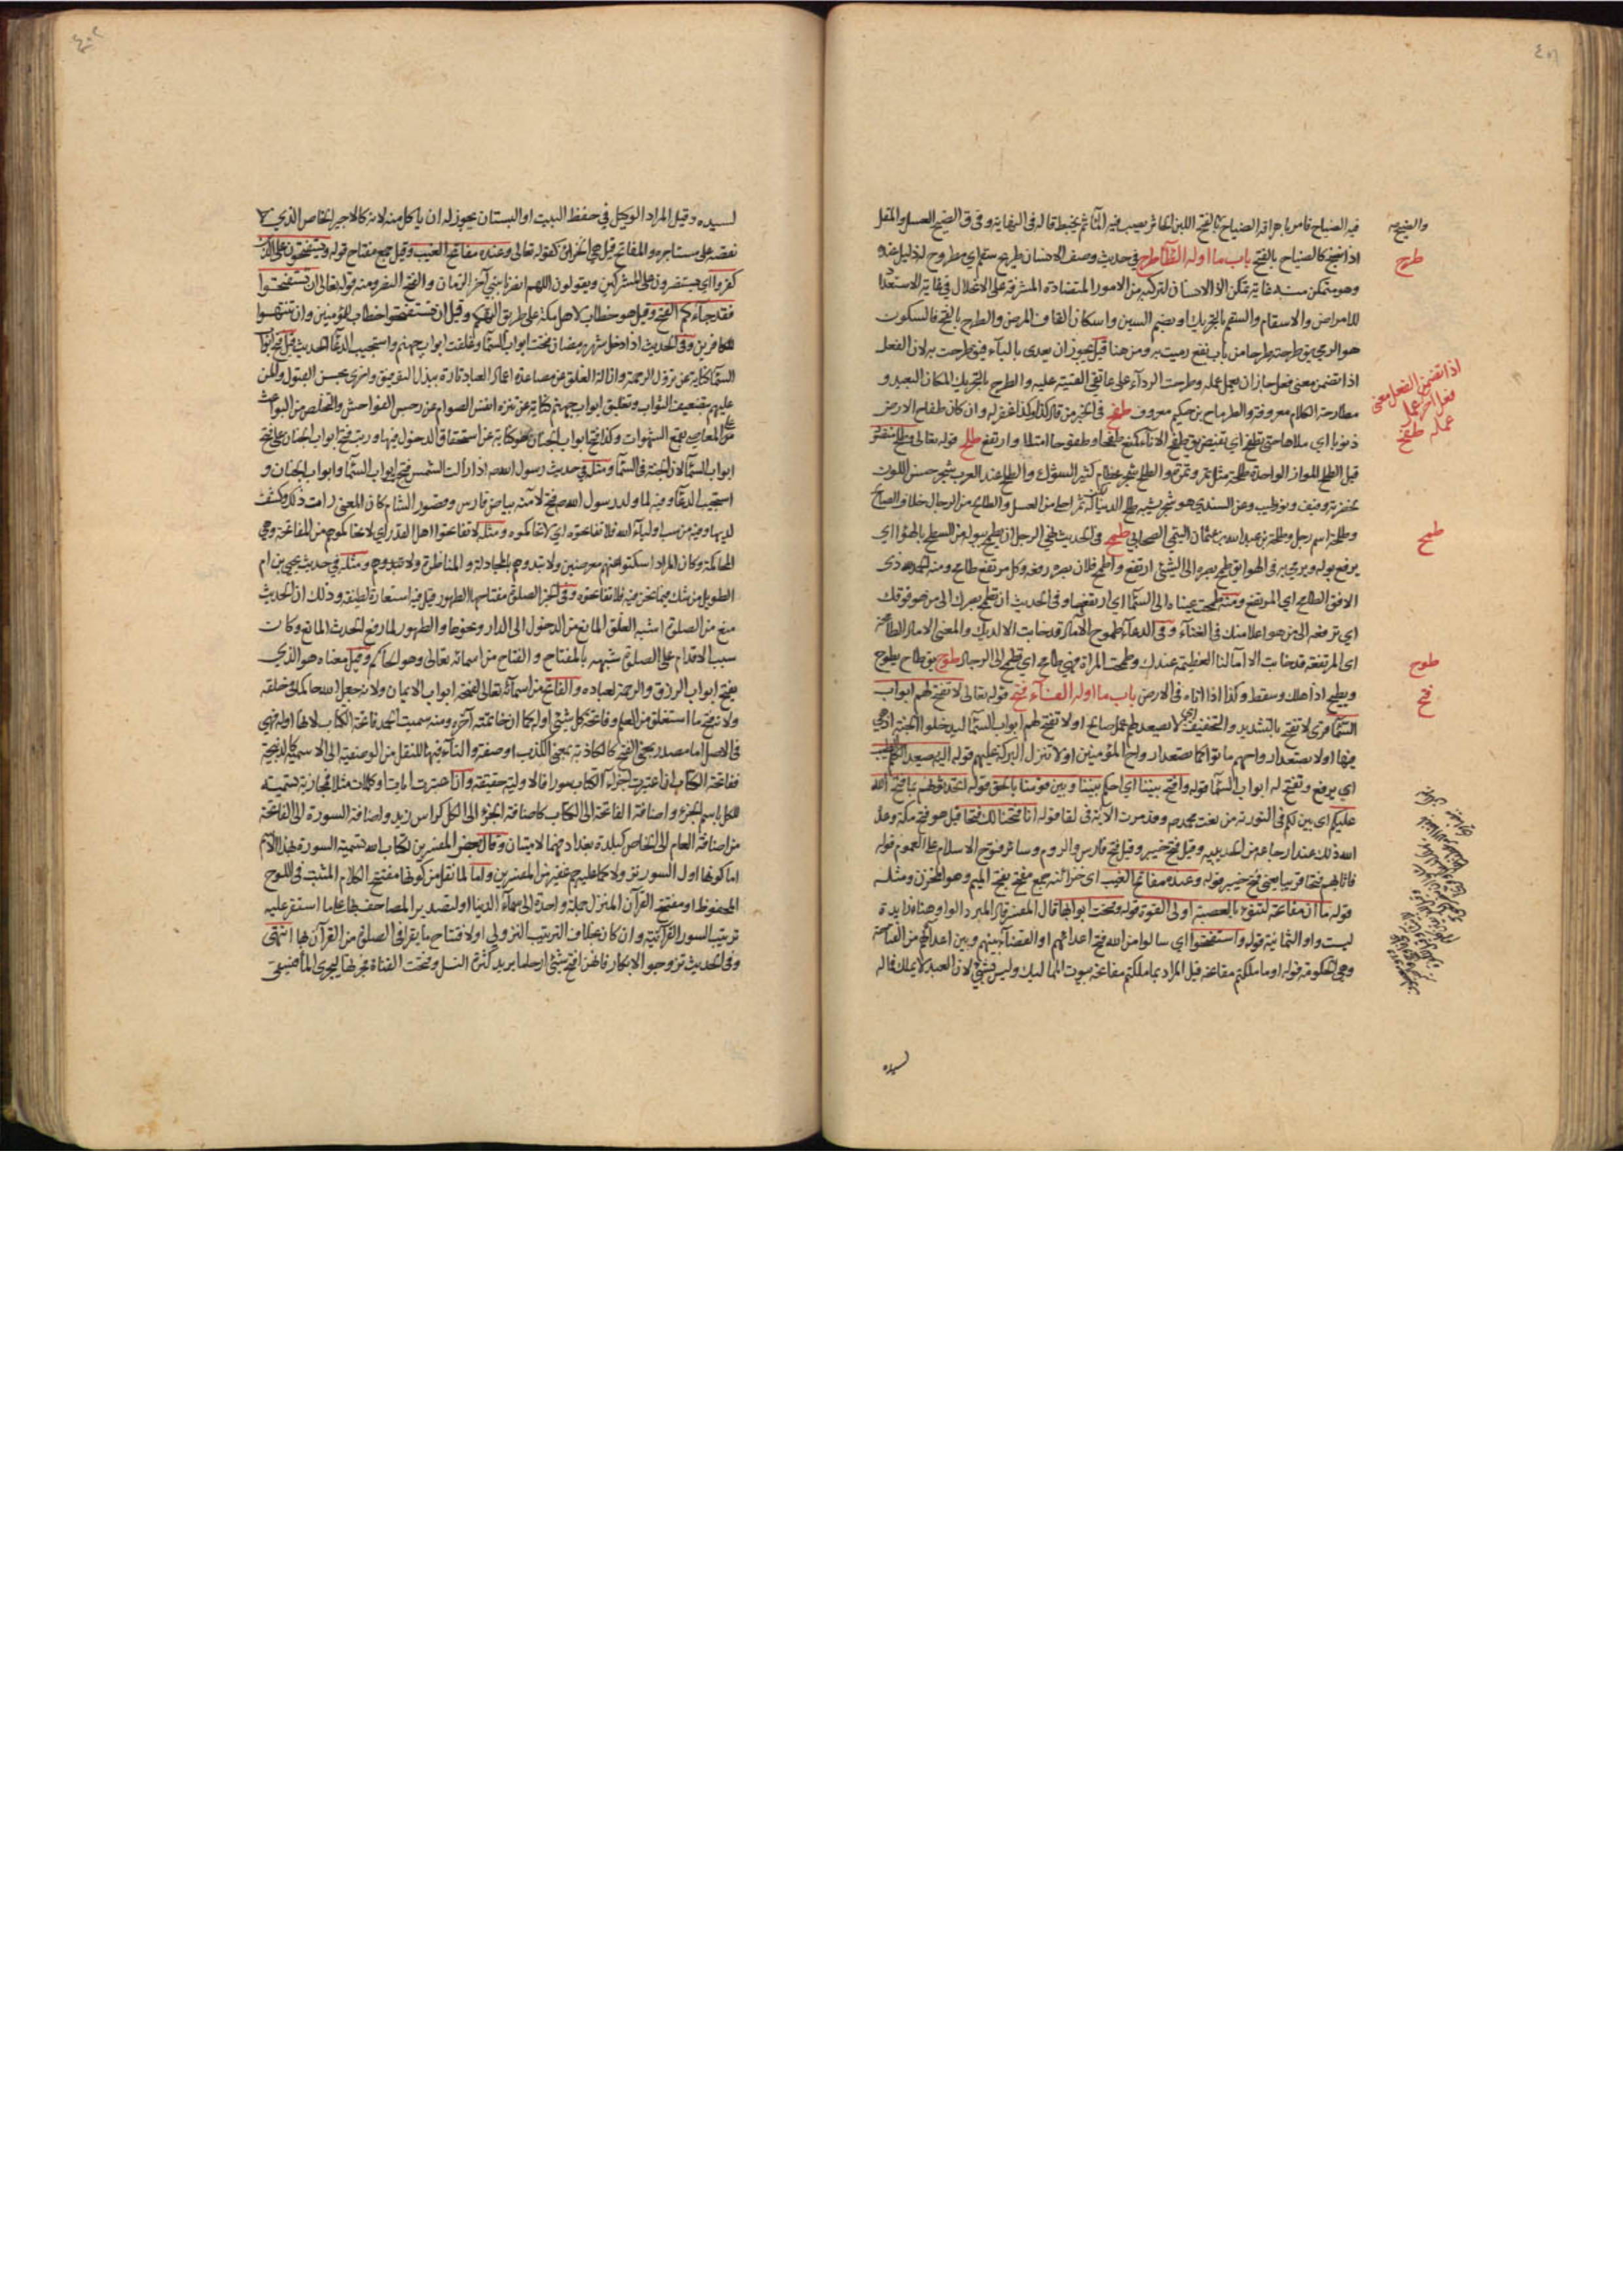 ٤٠١
فيه الضياح فامر باهراقه الضياح بالفتح اللبن الخاثر يصب فيه الماء ثم يخبط قاله في النهاية وفي ق الضيح العسل والمقل
اذا نضج كالضياح بالفتح باب ما اوله الطاء طرح في حديث وصف الانسان طريح سقم اي مطروح
وهو متمكن منه غاية تمكن اذ الانسان لتركبه من الامور المتضادة المشرفة على الانحلال في غاية الاستعداد
للامراض والاسقام والسقم بالتحريك او بضم السين واسكان القاف المرض والطرح بالفتح فالسكون
هو الرمي يق طرحته طرحا من باب نفع رميت به ومن هنا قيل يجوز ان يعدى بالباء فيق طرحت به لان الفعل
اذا تضمن معنى فعل جاز ان يعمل عمله وطرحت الرداء على عاتقي القيته عليه والطرح بالتحريك المكان البعيد و
مطارحة الكلام معروفة والطرماح بن حكيم معروف طفح في الخبر من قال كذا وكذا غفر له وان كان طفاح الارض
ذنوبا اي ملاها حتى تطفح اي تفيض يق طفح الاناء كمنع طفحا وطفوحا امتلا وارتفع طلح قوله تعالى وطلح منضود
قيل الطلح الموز الواحدة طلحة مثل تمر وتمرة والطلح شجر عظام كثير الشوك والطلح عند العرب شجر حسن اللون
لخضرته رفيف ونور طيب وعن السندي هو شجر يشبه طلح الدنيا لكن له ثمر احلى من العسل والطالح من الرجال خلاف الصالح
وطلحة اسم رجل وطلحة بن عبد الله بن عثمان التيمي الصحابي طمح في الحديث نهي الرجل ان يطمح ببوله من السطح بالهواء اي
يرفع بوله ويرمي به في الهوا يق طمح بصره الى الشئ ارتفع واطمح فلان بصره رفعه وكل مرتفع طامح ومنه الحمد لله ذي
الافق الطامح اي المرتفع ومنه طمحت عيناه الى السماء اي ارتفعتا وفي الحديث ان تطمح ببصرك الى من هو فوقك
اي ترفعه الى من هو اعلا منك في الغناء وفي الدعاء طموح الآمال قد خابت الا لديك والمعنى الامال الطامحة
اي المرتفعة قد خابت الا آمالنا العظيمة عندك وطمحت المراة فهي طامح اي تطمح الى الرجال طوح يق طاح يطوح
ويطيح اذا هلك وسقط وكذا اذا تاه في الارض باب ما اوله الفاء فتح قوله تعالى لا تفتح لهم ابواب
السماء قرئ لا تفتح بالتشديد والتخفيف اي لا يصعد لهم عمل صالح او لا تفتح لهم ابواب السماء ليدخلوا الجنة اذ هي
فيها او لا يصعد ارواحهم اذا ماتوا كما تصعد ارواح المؤمنين او لا تنزل البركة عليهم قوله اليه يصعد الكلم الطيب
اي يرفع وتفتح له ابواب السماء قوله وافتح بيننا اي احكم بيننا وبين قومنا بالحق قوله اتحدثونهم بما فتح الله
عليكم اي بين لكم في التورية من نعت محمد ص وقد مرت الآية في لقا قوله انا فتحنا لك فتحا قيل هو فتح مكة وعد
الله ذلك عند ارجاعه من الحديبية وقيل فتح خيبر وقيل فتح فارس والروم وسائر فتوح الاسلام على العموم قوله
فاثابهم فتحا قريبا يعني فتح خيبر قوله وعنده مفاتح الغيب اي خزائنه جمع مفتح بفتح الميم وهو المخزن ومثله
قوله ما ان مفاتحه لتنوء بالعصبة اولى القوة قوله وفتحت ابوابها قال المفسر قال المبرد الواو هنا زايدة
ليست واو الثمانية قوله واستفتحوا اي سالوا من الله فتح اعدائهم او القضاء بينهم وبين اعدائهم من الفتاحة
وهي الحكومة قوله او ما ملكتم مفاتحه قيل المراد بما ملكتم مفاتحه بيوت المماليك وليس بشئ لان العبد لا يملك فماله
لسيده
طرح
اذا تضمن الفعل معنى
فعل آخر عمل
عمله طفح
طمح
طوح
فتح
٤٠٢
لسيده وقيل المراد الوكيل في حفظ البيت او البستان يجوز له ان ياكل منه لانه كالاجير الخاص الذي
نفقته على مستاجره والمفاتح قيل هي الخزائن كقوله تعالى وعنده مفاتح الغيب وقيل جمع مفتاح قوله ويستفتحون على الذين
كفروا اي يستنصرون على المشركين ويقولون اللهم انصرنا بنبي آخر الزمان والفتح النصر ومنه قوله تعالى ان تستفتحوا
فقد جاءكم الفتح وقيل هو خطاب لاهل مكة على طريق التهكم وقيل ان تستفتحوا خطاب للمؤمنين وان تنتهوا
للكافرين وفي الحديث اذا دخل شهر رمضان فتحت ابواب السماء وغلقت ابواب جهنم واستجيب الدعاء الحديث قيل فتح ابواب
السماء كناية عن نزول الرحمة وازالة الغلق عن مصاعد اعمال العباد تارة ببذل التوفيق واخرى بحسن القبول
عليهم بتضعيف الثواب وتغليق ابواب جهنم كناية عن تنزه انفس الصوام عن رجس الفواحش والتخلص من البواعث
على المعاصي بقمع الشهوات وكذا فتح ابواب الجنان هو كناية عن استحقاق الدخول فيها وربت فتح ابواب الجنان على فتح
ابواب السماء لان الجنة في السماء ومثله في حديث رسول الله ص اذا زالت الشمس فتح ابواب السماء وابواب الجنان و
استجيب الدعاء وفيه لما ولد رسول الله ص فتح لآمنة بياض فارس وقصور الشام كان المعنى رات ذلك وكشف
لديها وفيه من سب اولياء الله فلا تفاتحوه اي لا تحاكموه ومثله لا تفاتحوا اهل القدر اي لا تحاكموهم من المفاتحة وهي
المحاكمة وكان المراد اسكتوا عنهم معرضين ولا تبدوهم بالمجادلة والمناظرة ولا تبدوهم ومثله في حديث يحيى بن ام
الطويل من شك فيما نحن فيه فلا تفاتحوه وفي الخبر الصلوة مفتاحها الطهور قيل فيه استعارة لطيفة وذلك ان الحديث
منع من الصلوة اشبه الغلق المانع من الدخول الى الدار ونحوها والطهور لما رفع الحدث المانع وكان
سبب الاقدام على الصلوة شبهه بالمفتاح والفتاح من اسمائه تعالى وهو الحاكم وقيل معناه هو الذي
يفتح ابواب الرزق والرحمة لعباده والفاتح من اسمائه تعالى لفتحه ابواب الايمان ولانه جعل الله حاكما في خلقه
ولانه فتح ما استغلق من العلم وفاتحة كل شئ اوله كما ان خاتمته آخره ومنه سميت الحمد فاتحة الكتاب لانها اوله فهي
في الاصل اما مصدر بمعنى الفتح كالكاذبة بمعنى الكذب او صفة والتاء فيها للنقل من الوصفية الى الاسمية كالذبيحة
ففاتحة الكتاب ان اعتبرت اجزاء الكتاب سورا فالاولية حقيقة وان اعتبرت آيات او كلمات مثلا فمجازية تسمية
للكل باسم الجزء واضافة الفاتحة الى الكتاب كاضافة الجزء الى الكل كراس زيد واضافة السورة الى الفاتحة
من اضافة العام الى الخاص كبلدة بغداد فهما لامتيتان وقال بعض المفسرين لكتاب الله تسمية السورة بهذا الاسم
اما كونها اول السور نزولا كما عليه جم غفير من المفسرين واما لما نقل من كونها مفتتح الكلام المثبت في اللوح
المحفوظ او مفتتح القرآن المنزل جملة واحدة الى سماء الدنيا او لتصدير المصاحف بها على ما استقر عليه
ترتيب السور القرآنية وان كان بخلاف الترتيب النزولي او لافتتاح ما يقرا في الصلوة من القرآن بها انتهى
وفي الحديث تزوجوا الابكار فانهن افتح شئ ارحاما يريد كثرة النسل وفتحت القناة فجرتها ليجري الماء فيسقى